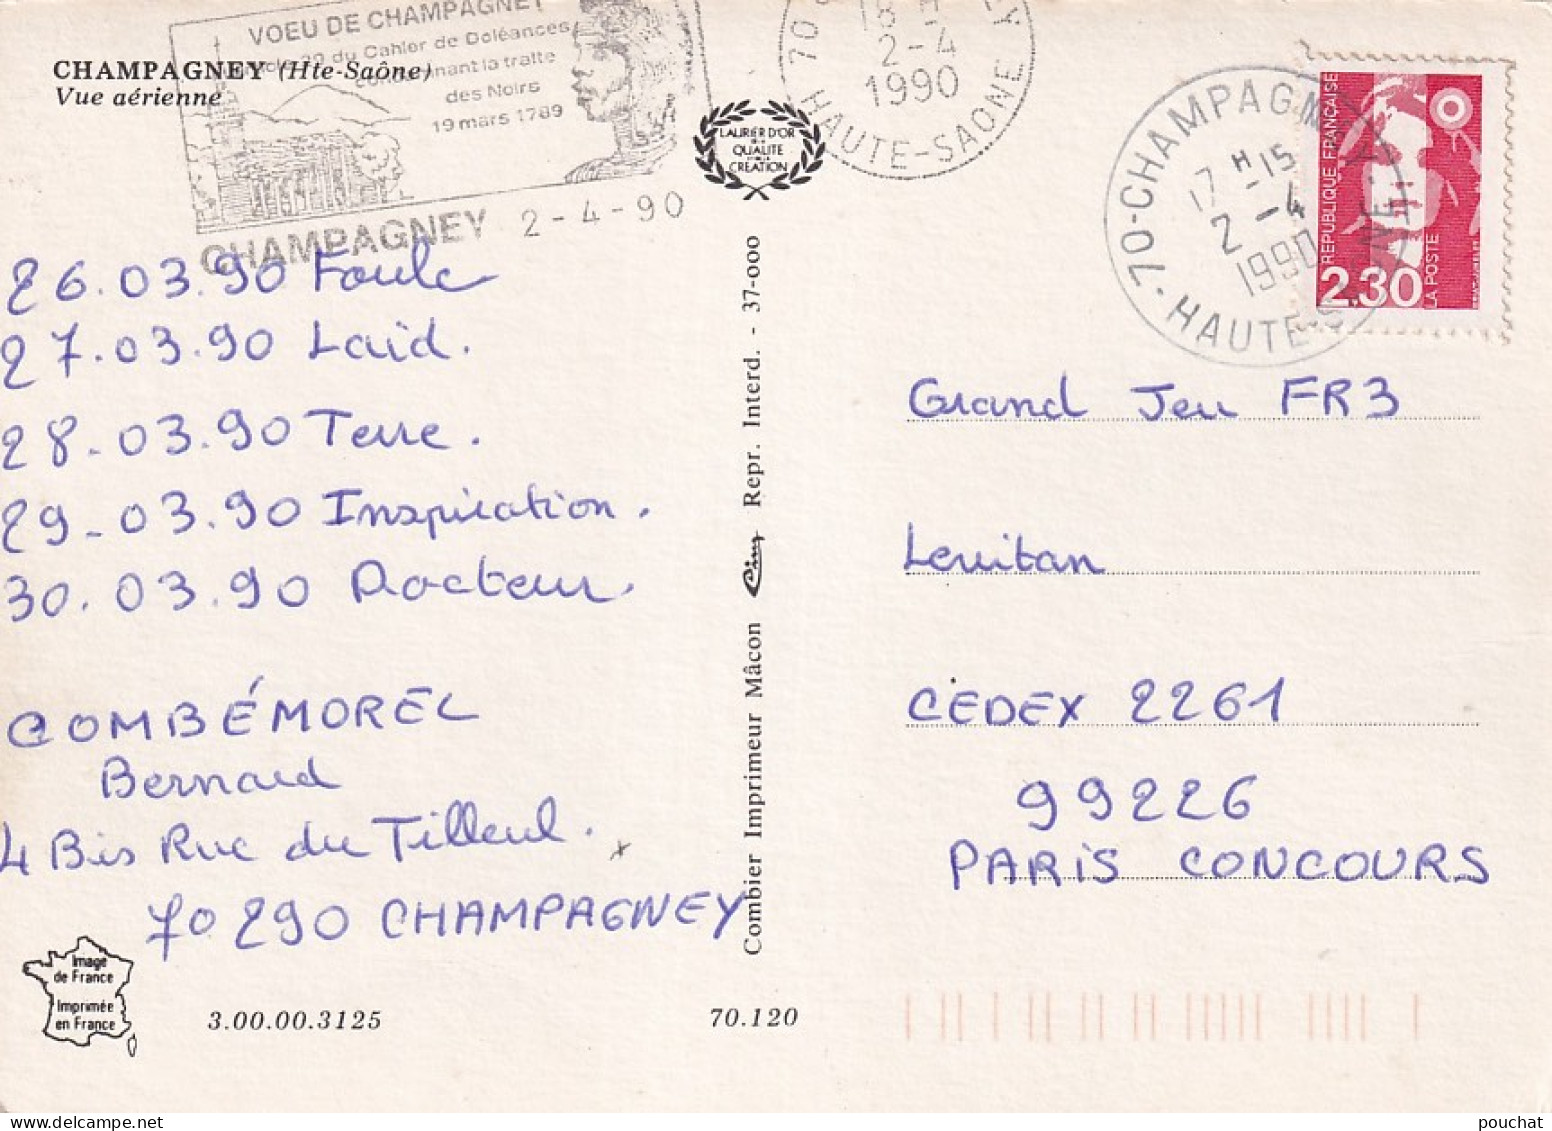 VOEU DE CHAMPAGNEY
du Cahier de Doléances
la traite
des Noirs
19 mars 1789
CHAMPAGNEY 2-4-90
CHAMPAGNEY (Hte-Saône)
Vue aérienne
70
18 H
2-4
1990
HAUTE-SAONE
LAURIER D'OR
DE LA
QUALITE
CREATION
70-CHAMPAGNEY
17 H-15
2-4
1990
70-HAUTE-S
REPUBLIQUE FRANÇAISE
2.30
LA POSTE
26.03.90 Foule
27.03.90 Laid.
28-03.90 Terre.
29-03.90 Inspiration.
30.03.90 Docteur.
COMBÉMOREL
Bernard
4 Bis Rue du Tilleul.
70290 CHAMPAGNEY
Combier Imprimeur Mâcon Cim Repr. Interd. - 37-000
Grand Jeu FR3
Levitan
CEDEX 2261
99226
PARIS CONCOURS
Image
de France
Imprimée
en France
3.00.00.3125
70.120
pouchat